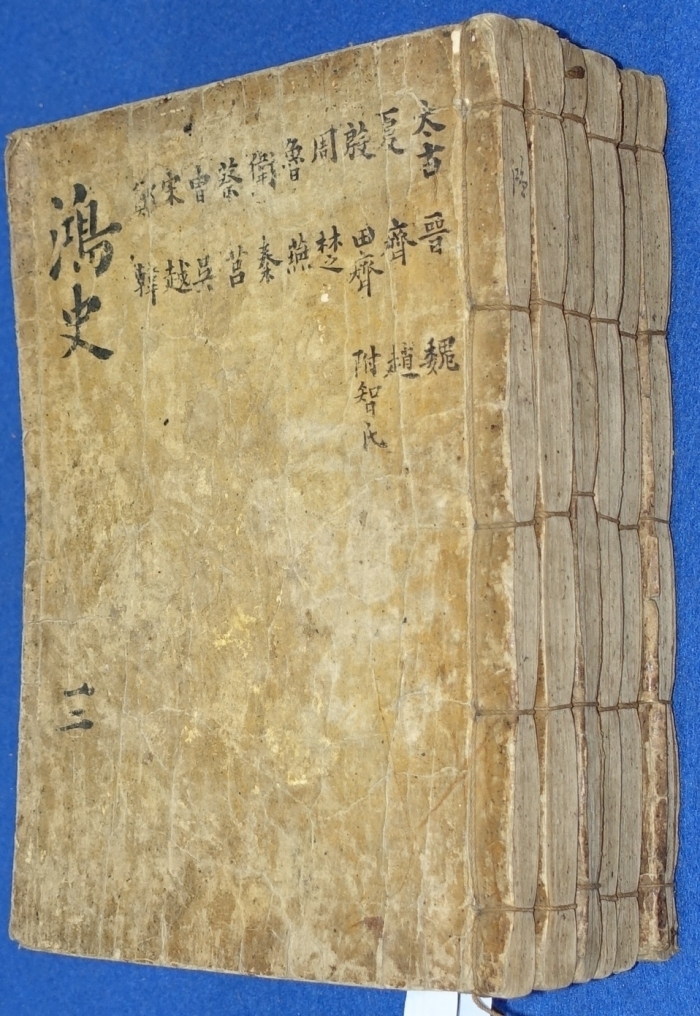 太古 夏 殷 周 魯 衛 蔡 曹 宋 鄭
晉 齊 田齊 楚 燕 秦 莒 吳 越 韓
魏 趙 附智氏
鴻史